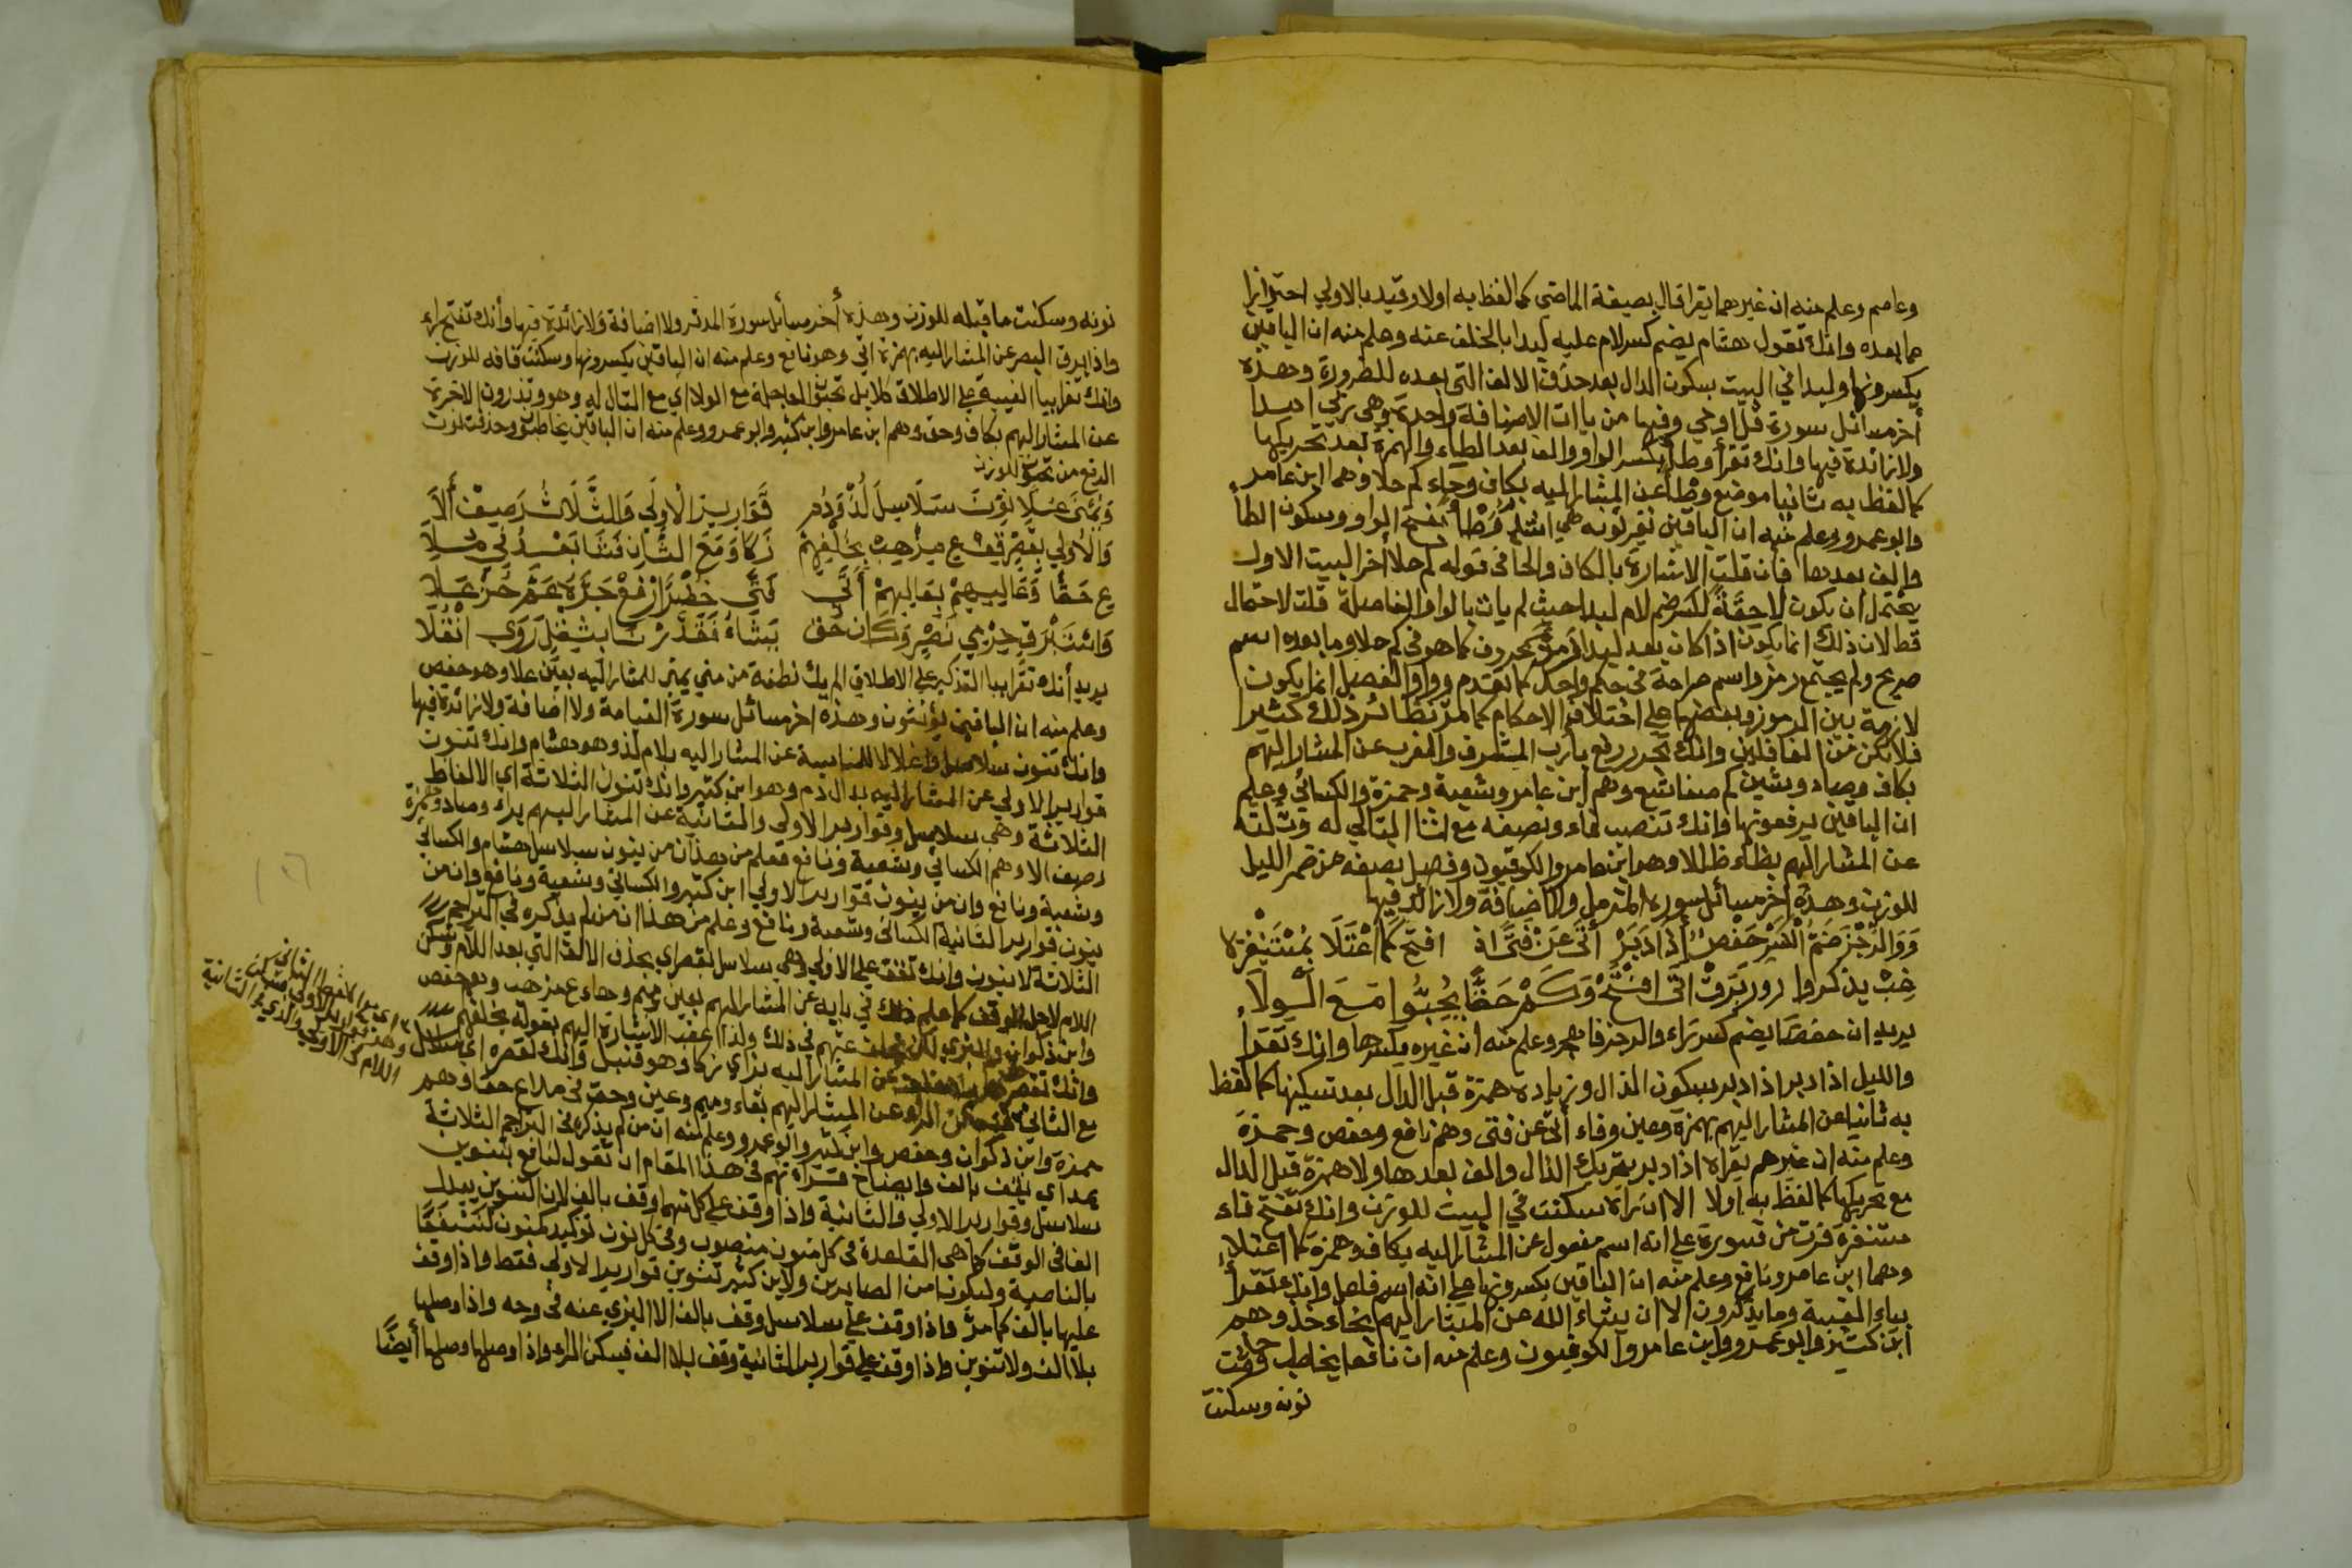 وعاصم وعلم منه ان غيرهما يقرا قال بصيغة الماضي كما لفظ به اولا وقيد بالاولي احترازا
مما بعده وانك تقول هشام يضم كسر لام عليه لبدا بالخلف عنه وعلم منه ان الباقين
يكسرونها ولبدا في البيت بسكون الدال بعد حذف الالف التي بعده للضرورة وهذه
أخر مسائل سورة قل اوحي وفيها من ياات الاضافة واحدة وهي ربي امدا
ولا زائدة فيها وانك تقرأ وطاء بكسر الواو والف بعد الطاء والهمزة بعد تحريكها
كما لفظ به ثانيا موضع وطأ عن المشار اليه بكاف وحاء كم حلا وهما ابن عامر
وابو عمرو وعلم منه ان الباقين يقرئونه هي اشد وطأ بفتح الواو وسكون الطا
والف بعدها فان قلت الاشارة بالكاف والحا في قوله كم حلا أخر البيت الاول
يحتمل ان يكون لاحقة لكسر ضم لام لبدا حيث لم يات بالواو الفاصلة قلت لا احتمال
قط لان ذلك انما يكون اذا كان بعد لبدا رمز بحروف كما هو في كم حلا وما بعده اسم
صريح ولم يجتمع رمز واسم صراحة في حكم واحد كما تقدم وواو الفصل انما يكون
لازمة بين الرموز وبعضها علي اختلاف الاحكام كما مر نظائر ذلك كثيرا
فلا تكن من الغافلين وانك تجرر رفع بارب المشرق والمغرب عن المشار اليهم
بكاف وصاد وشين كم صفا شيع وهم ابن عامر وشعبة وحمزة والكسائي وعلم
ان الباقين يرفعونها وانك تنصب فاء ونصفه مع ثنا التالي له وثلثه
عن المشار اليهم بظاء ظللا وهم ابن عامر والكوفيون وفصل نصفه عن ضمر الليل
للوزن وهذه اخر مسائل سورة المزمل ولا اضافة ولا زائد فيها
وَوَالرِّجْزَ ضَمُّ الْكَسْرِ حَفْصٌ إِذَا دَبَرْ أَتَى عَنْ فَتًى اذ افتح كَمَا اعْتَلَا بِمُسْتَنْفِرَة
خِبْ يذكروا رور بَرَقْ اتَى افْتَحْ وَكَمْ حَقًّا يُحِبُّوا مَعَ الْوِلَا
يريد ان حفصا يضم كسر راء والرجز فاهجر وعلم منه ان غيره يكسرها وانك تقرا
والليل اذا دبر اذ ادبر بسكون الذال وزيادة همزة قبل الدال بعد تسكينها كما لفظ
به ثانيا عن المشار اليهم بهمزة وعين وفاء أتى عن فتى وهم نافع وحفص وحمزة
وعلم منه ان غيرهم يقراه اذا دبر بتحريك الذال والف بعدها ولا همزة قبل الدال
مع تحريكها كما لفظ به اولا الا ان راءه سكنت في البيت للوزن وانك تفتح فاء
مستنفرة فرت من قسورة علي انه اسم مفعول عن المشار اليه بكاف وهمزة كما اعتلا
وهما ابن عامر ونافع وعلم منه ان الباقين يكسرونها علي انه اسم فاعل وانك تقرأ
بياء الغيبة وما يذكرون الا ان يشاء الله عن المشار اليهم بخاء خذ وهم
ابن كثير وابو عمرو وابن عامر والكوفيون وعلم منه ان نافعا يخاطب وحذفت
نونه وسكنت
نونه وسكنت ما قبله للوزن وهذه أخر مسائل سورة المدثر ولا اضافة ولا زائدة فيها وأنك تفتح راء
واذا برق البصر عن المشار اليه بهمزة اتي وهو نافع وعلم منه ان الباقين يكسرونها وسكنت قافه للوزن
وانك تقرا بيا الغيبة علي الاطلاق كلا بل تحبون العاجلة مع الولا اي مع التال له وهو وتذرون الاخرة
عن المشار اليهم بكاف وحق وهم ابن عامر وابن كثير وابو عمرو وعلم منه ان الباقين يخاطبون وحذفت نون
الرفع من تحبون للوزن
وَيُمْنَى عَلَا نَوِّنْ سَلَاسِلَ لُذْ وَدُمْ قَوَارِيرَ الْأولَي وَالثَّلَاثُ رَصِيفْ أَلَا
وَالْأُولَي بِقَصْرٍ قِفْ عِ مِزْ هِبْ بِخُلْفِهِمْ زَكَا وَمَعَ الثَّانِ فَشَا بَعْدُ فِي مَلَا
عِ حَقًّا وَعَالِيهِمْ بِعَالِيهِمْ أَتَى فَتًي خُضْرًا ارْفَعْ جَرَّهُ عَمَّ حَزْ عَلَا
وَاسْتَبْرَقٍ حِرْمِي نَصْرٍ وَكَانَ حَقْ يَشَاءُ فَقَدَّرْنَا بِثِقْلٍ رَوَي انْقُلَا
يريد أنك تقرا بيا التذكير علي الاطلاق الم يك نطفة من مني يمني للمشار اليه بعين علا وهو حفص
وعلم منه ان الباقين يؤنثون وهذه اخر مسائل سورة القيامة ولا اضافة ولا زائدة فيها
وانك تنون سلاسل واغلالا للمناسبة عن المشار اليه بلام لذ وهو هشام وانك تنون
قوارير الاولي عن المشار اليه بدال دم وهو ابن كثير وانك تنون الثلاثة اي الالفاظ
الثلاثة وهي سلاسل وقوارير الاولي والثانية عن المشار اليهم براء وصاد وهمزة
رصيف الا وهم الكسائي وشعبة ونافع فعلم من هذا ان من ينون سلاسل هشام والكسائي
وشعبة ونافع وان من ينون قوارير الاولي ابن كثير والكسائي وشعبة ونافع وان من
ينون قوارير الثانية الكسائي وشعبة ونافع وعلم من هذا ان من لم يذكره في التراجم
الثلاثة لا ينون وانك تقف علي الاولي وهي سلاسل بقصر اي بحذف الالف التي بعد اللام وتسكن
اللام لاجل الوقف كما علم ذلك في بابه عن المشار اليهم بعين وميم وهاء ع مز هب وهم حفص
وابن ذكوان والبزي لكن بخلف عنهم في ذلك ولذا عقب الاشارة اليهم بقوله بخلفهم
وانك تقصر عن المشار اليه بزاي زكا وهو قنبل وانك تقصره اي سلاسل
مع الثاني عن المشار اليهم بفاء وميم وعين وحق في ملا ع حقا وهم
حمزة وابن ذكوان وحفص وابن كثير وابو عمرو وعلم منه ان من لم يذكره في التراجم الثلاثة
يمد اي يقف بالف وايضاح قراءتهم في هذا المقام ان تقول لنافع بتنوين
سلاسل وقوارير الاولي والثانية واذا وقف علي كل منهما وقف بالف لان التنوين يبدل
الفا في الوقف كما هي القاعدة في كل منون منصوب وفي كل نون توكيد كنون لنسفعا
بالناصية وليكونا من الصاغرين ولابن كثير تنوين قوارير الاولي فقط واذا وقف
عليها بالف كما مر واذا وقف علي سلاسل وقف بالف الا البزي عنه في وجه واذا وصلها
بلا الف ولا تنوين واذا وقف علي قوارير الثانية وقف بلا الف فيسكن الراء واذا وصلها وصلها أيضًا